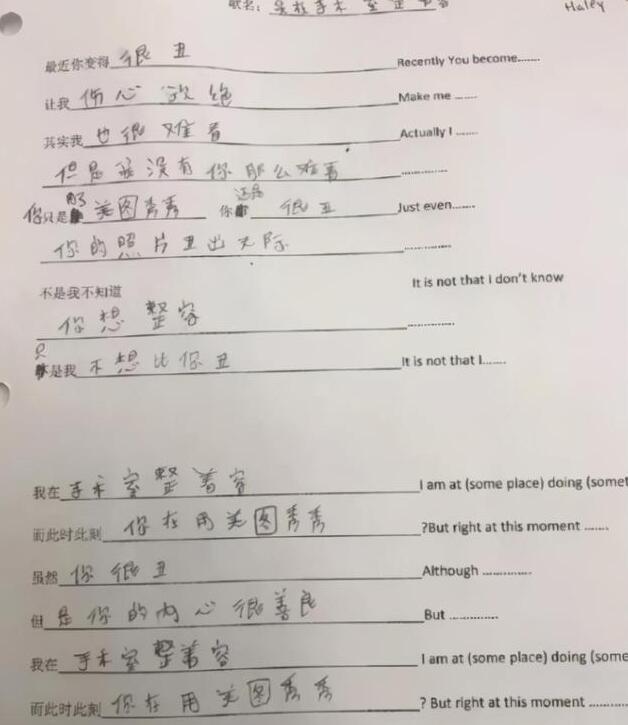 歌名：我在手术室整着容 Haley
最近你变得 很丑 Recently You become.......
让我 伤心欲绝 Make me .......
其实我 也很难看 Actually I .......
但是我没有你那么难看 ..............
你只是用了 美图秀秀 你还是 很丑 Just even.......
你的照片丑出天际 ..............
不是我不知道 It is not that I don't know
你想整容 ..............
只是我 不想比你丑 It is not that I.......
我在 手术室整着容 I am at (some place) doing (somet
而此时此刻 你在用美图秀秀 ?But right at this moment .......
虽然 你很丑 Although ..............
但 是你的内心很善良 But ..............
我在 手术室整着容 I am at (some place) doing (some
而此时此刻 你在用美图秀秀 ? But right at this moment .......